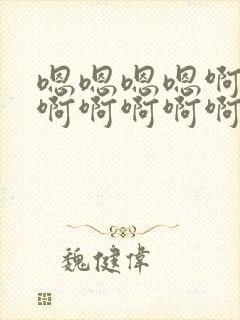 嗯嗯嗯嗯啊
啊啊啊啊啊
魏健偉